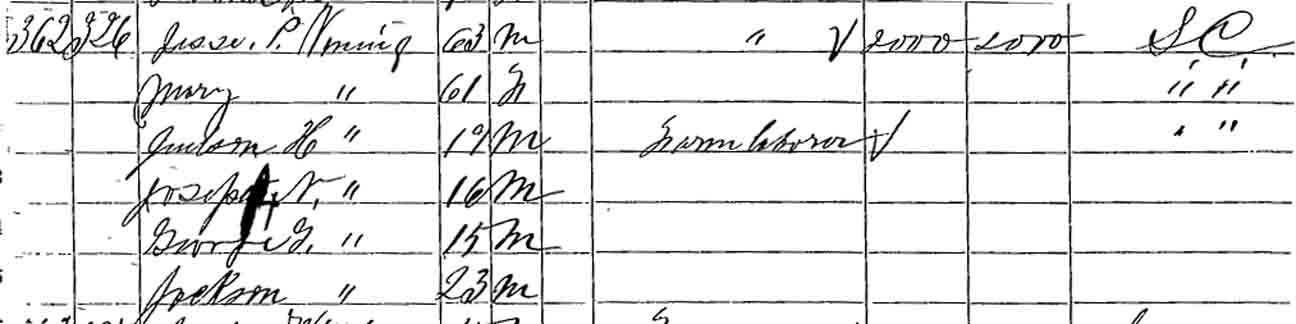 362 326 Jesse. P. 63 m " √ 2000 2000 S C
Mary " 61 f " "
Judson H " 19 M Farm laborer √ " "
Joseph N. " 16 M
George G. " 15 M
Jackson " 23 m